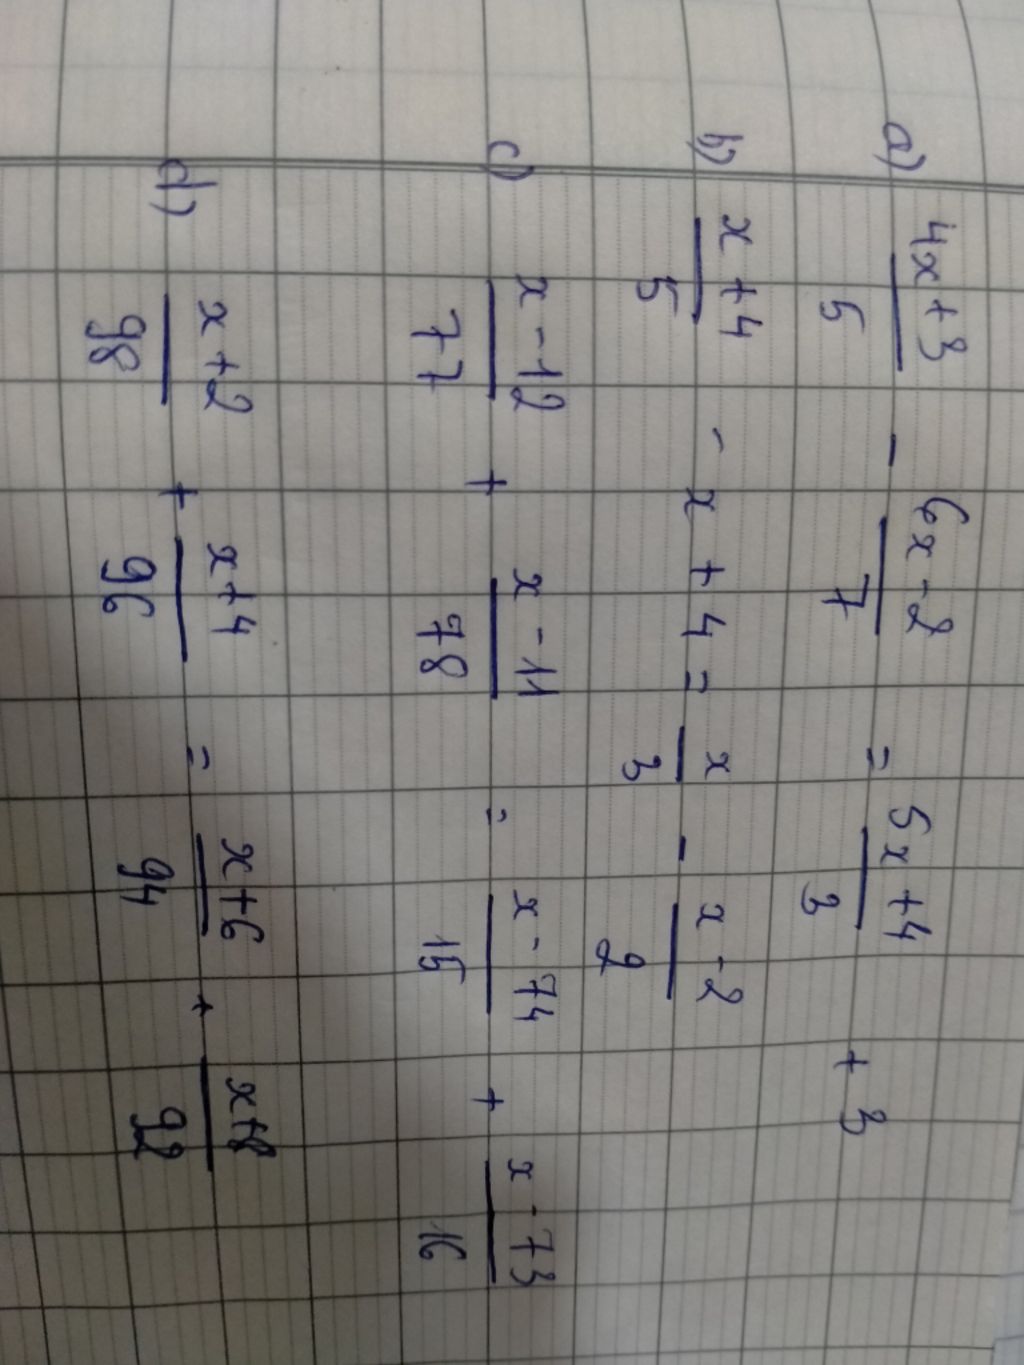 a) (4x+3)/5 - (6x-2)/7 = (5x+4)/3 + 3
b) (x+4)/5 - x + 4 = x/3 - (x-2)/2
c) (x-12)/77 + (x-11)/78 = (x-74)/15 + (x-73)/16
d) (x+2)/98 + (x+4)/96 = (x+6)/94 + (x+8)/92